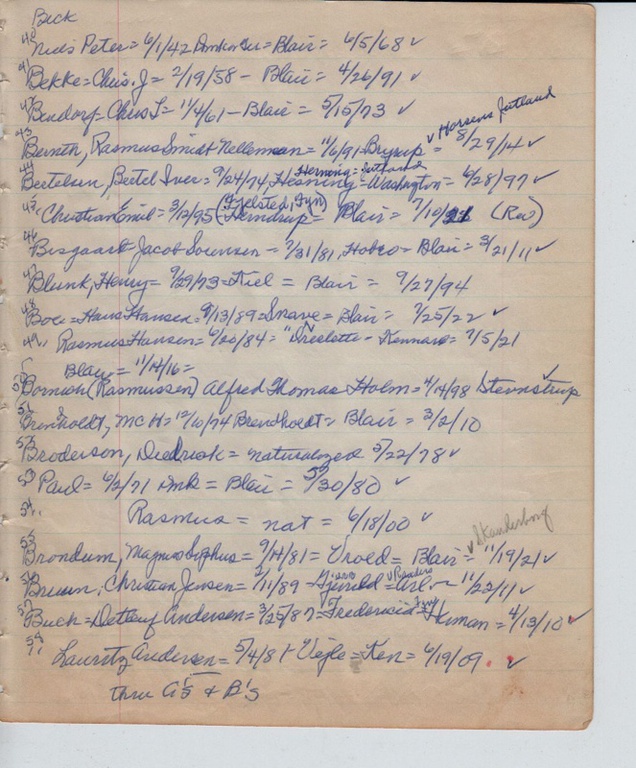 Beck
40 Niels Peter = 6/1/42 Blair = 6/5/68 ✓
41 Bekke = Chris. J = 2/19/58 - Blair = 4/26/91 ✓
42 Bendorf = Chris L = 11/4/61 - Blair = 5/15/73 ✓
Horsens Jutland
43 Bernth, Rasmus Smidt Nellemann = 11/6/91 Bryrup = 8/29/14 ✓
Herning = Jutland
44 Bertelsen, Bertel Iver = 9/24/74, Hesning = Washington = 6/28/97 ✓
(Fjelsted, Fyn)
45 Christian Emil = 3/12/95 Blair = 7/10/21 (Rw)
46 Bisgaard Jacob Sorensen = 7/31/81, Hobro = Blair = 3/21/11 ✓
47 Blunk, Henry = 9/29/73 = Kiel = Blair = 9/27/94
48 Boe = Hans Hansen = 9/13/89 = Snave = Blair = 7/25/22 ✓
49 " Rasmus Hansen = 6/20/84 = " - Kennard = 7/5/21
Blair = 11/14/16 =
Bornick (Rasmussen) Alfred Thomas Holm = 4/14/98 Stenstrup ✓
51 Brenholdt, MC H = 12/10/74 Brendholdt = Blair = 3/2/10
52 Broderson, Diedrick = naturalized 5/22/78 ✓
53 Paul = 6/2/71 Dmk = Blair = 5/30/80 ✓
54 " Rasmus = nat = 6/18/00 ✓
Skanderborg
55 Brondum, Magnus Sophus = 9/14/81 = Vroed = Blair = 11/19/21 ✓
Randers
56 Bruun, Christian Jensen = 2/11/89 = Gjerald = Arl - 11/22/11 ✓
57 Buck = Detleuf Andersen = 3/25/87 = Fredericia = Herman = 4/13/10 ✓
58 " Lauritz Andersen = 5/4/81 - Vejle = Ken = 6/19/09. ✓
thru A's & B's